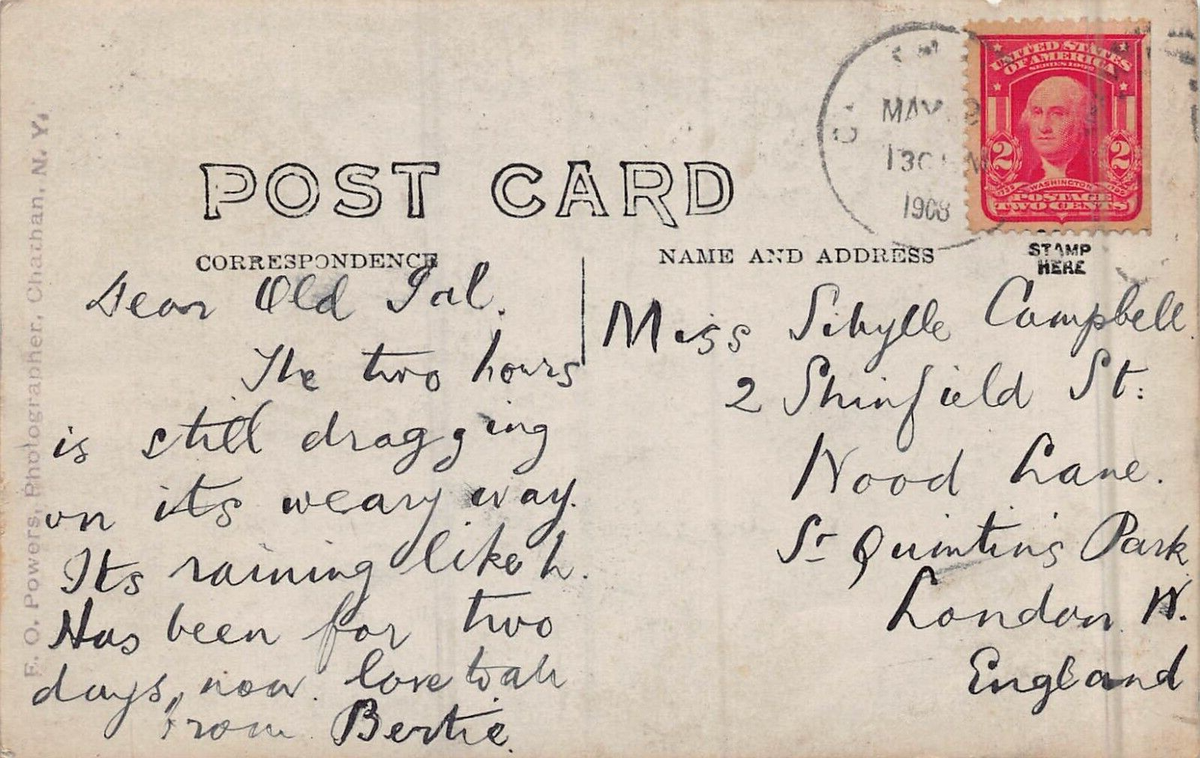 MAY
130 M
1908
UNITED STATES
OF AMERICA
SERIES 1902
2 2
WASHINGTON
POSTAGE
TWO CENTS
POST CARD
CORRESPONDENCE
NAME AND ADDRESS
STAMP
HERE
F. O. Powers, Photographer, Chathan, N. Y.
Dear Old Pal.
The two hours
is still dragging
on its weary way.
Its raining like h.
Has been for two
days, now. love to all
from Bertie.
Miss Sibylle Campbell
2 Shinfield St:
Wood Lane.
St Quintins Park
London W.
England